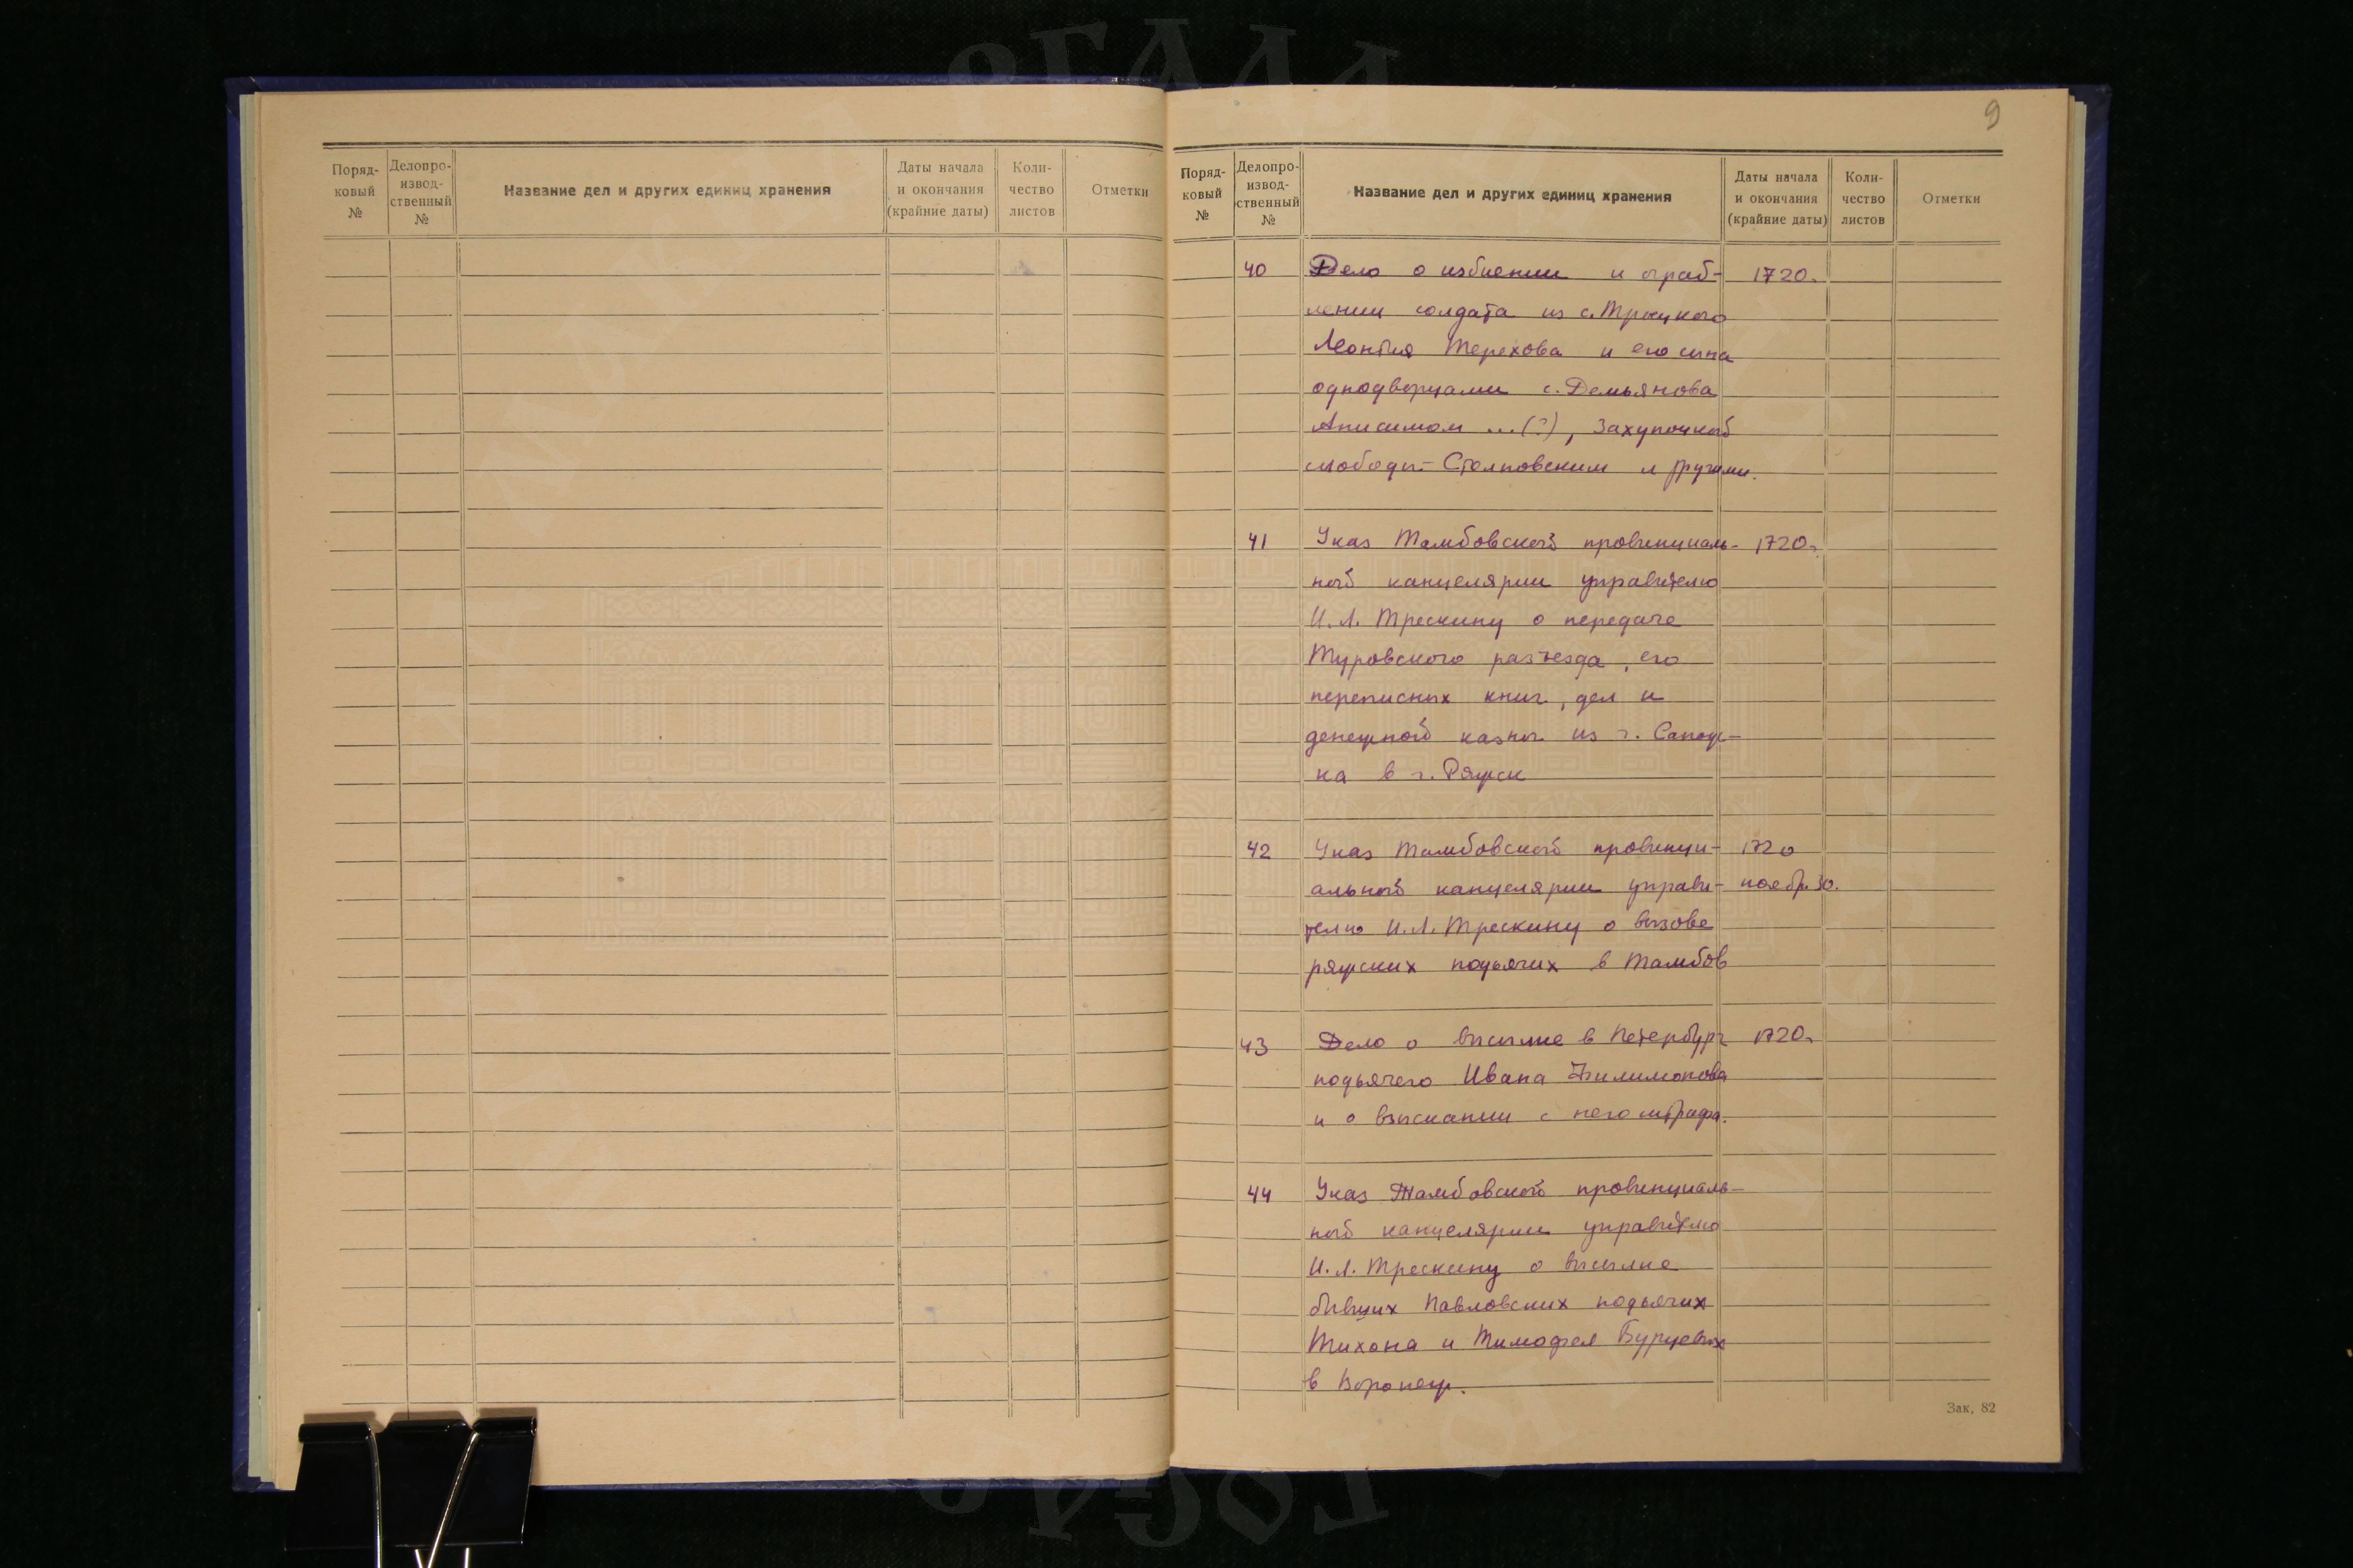 Поряд-
ковый
№
Делопро-
извод-
ственный
№
Название дел и других единиц хранения
Даты начала
и окончания
(крайние даты)
Коли-
чество
листов
Отметки
9
Поряд-
ковый
№
Делопро-
извод-
ственный
№
Название дел и других единиц хранения
Даты начала
и окончания
(крайние даты)
Коли-
чество
листов
Отметки
40 Дело о избиении и ограб- 1720г.
лении солдата из с. Троцкого
Леонтия Терехова и его сына
однодворцами с. Демьянова
Анисимом ...(?), Захупоцкой
слободы - Столповским и другими.
41 Указ Тамбовской провинциаль- 1720г.
ной канцелярии управителю
И.Л. Трескину о передаче
Туровского разъезда, его
переписных книг, дел и
денежной казны из г. Сапож-
ка в г. Ряжск
42 Указ Тамбовской провинци- 1720
альной канцелярии управи- ноябр. 30.
телю И.Л. Трескину о вызове
ряжских подьячих в Тамбов
43 Дело о высылке в Петербург 1720г.
подьячего Ивана Филимонова
и о взыскании с него штрафа.
44 Указ Тамбовской провинциаль-
ной канцелярии управителю
И.Л. Трескину о высылке
бывших Павловских подьячих
Тихона и Тимофея Бурцевых
в Воронеж.
Зак. 82